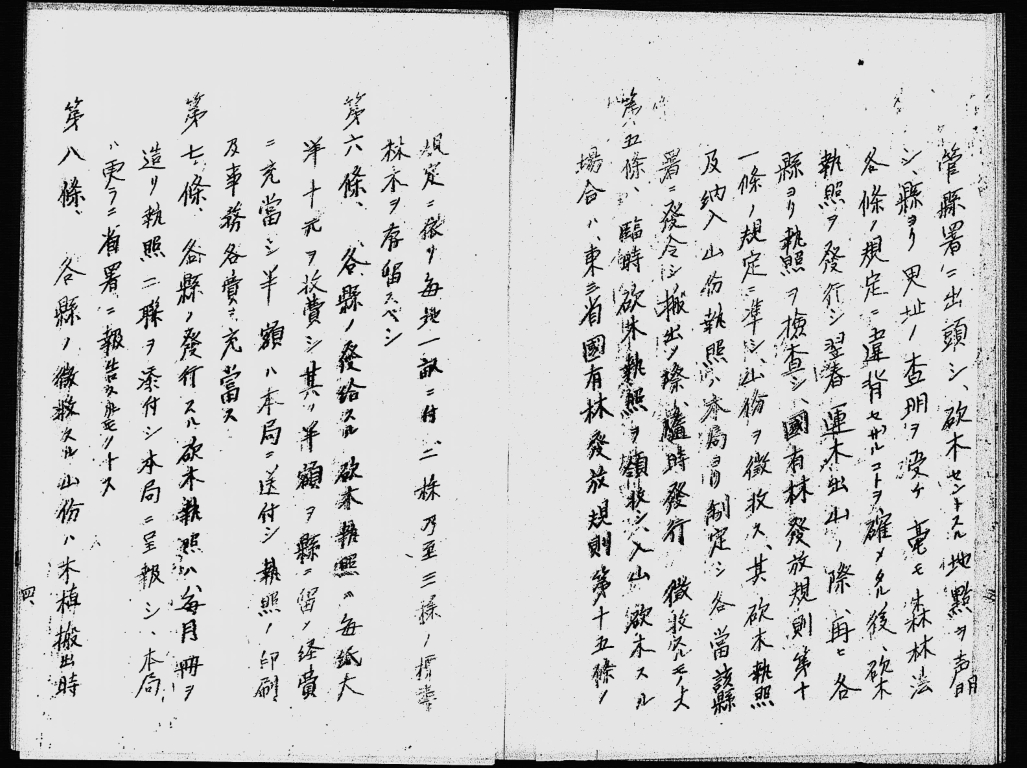 管縣署ニ出頭シ、砍木セントスル地點ヲ声明
シ、縣ヨリ界址ノ查明ヲ受ケ毫モ森林法
各條ノ規定ニ違背セザルコトヲ確メタル後、砍木
執照ヲ發行シ翌春運木出山ノ際、再ヒ各
縣ヨリ執照ヲ檢查シ、國有林發放規則第十
一條ノ規定ニ準シ、山份ヲ徵收ス、其砍木執照
及納入山份執照ハ本局ヨリ制定シ各當該縣
署ニ發令シ搬出ノ際、隨時發行徵收
第五條、臨時砍木執照ヲ領收シ、入山砍木スル
場合ハ、東三省國有林發放規則第十五條ノ
規定ニ依リ每地一畝ニ付、二株乃至三株ノ標準
林木ヲ存留スベシ
第六條、各縣ノ發給スル砍木執照ハ每紙大
洋十元ヲ收費シ其ノ半額ヲ縣ニ留メ経費
ニ充當シ半額ハ本局ニ送付シ執照ノ印刷
及事務各費ニ充當ス
第七條、各縣ノ發行スル砍木執照ハ、每月冊ヲ
造リ執照二聯ヲ添付シ本局ニ呈報シ、本局
ハ更ラニ省署ニ報告スルモノトス
第八條、各縣ノ徵收スル山份ハ木植搬出時
四、